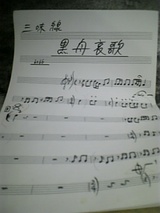 三味線
黒舟哀歌